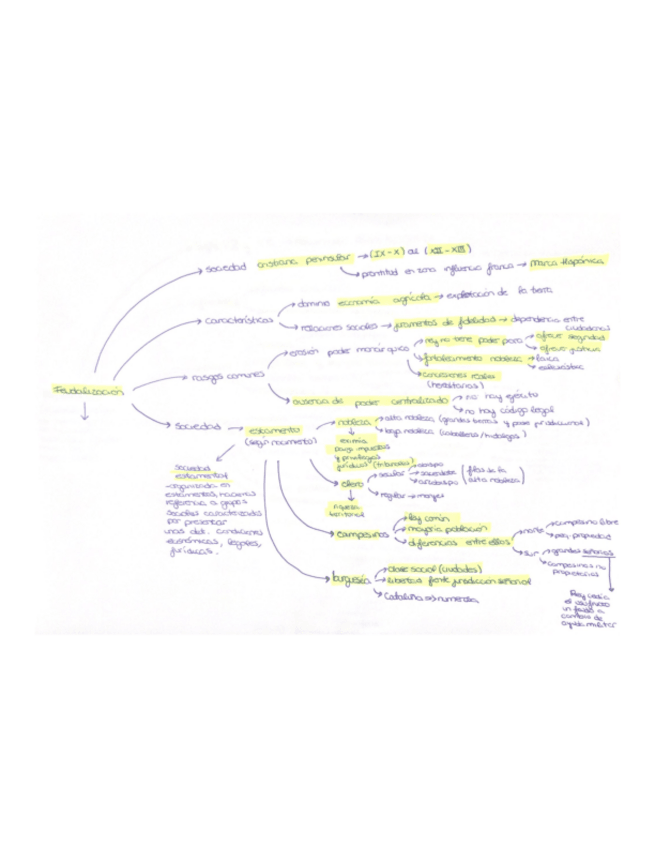 sociedad cristiana peninsular → (IX - X) al (XII - XIII)
prontitud en zona influencia franca → Marca Hispánica
características
dominio economía agrícola → explotación de la tierra
relaciones sociales → juramentos de fidelidad → dependencia entre
ciudadanos
rasgos comunes
erosión poder monárquico
rey no tiene poder pero
ofrece seguridad
ofrece justicia
fortalecimiento nobleza
laica
eclesiástica
concesiones reales
(hereditarias)
ausencia de poder centralizado
no hay ejército
no hay código legal
Feudalización
sociedad → estamento
(según nacimiento)
nobleza
alta nobleza (grandes tierras y poder jurisdiccional)
baja nobleza (caballeros/hidalgos)
exentos
pago impuestos
y privilegios
jurídicos (tribunales)
clero
secular → sacerdotes
obispo
arzobispo
(filas de la
alta nobleza)
regular → monjes
riqueza
territorial
sociedad
estamental
organizada en
estamentos, hacemos
referencia a grupos
sociales caracterizados
por presentar
unas det. condiciones
económicas, legales,
jurídicas.
campesinos
ley común
mayoría población
diferencias entre ellos
norte
campesino libre
peq. propiedad
sur
grandes señoríos
campesinos no
propietarios
burguesía
clase social (ciudades)
libertad frente jurisdicción señorial
Cataluña → numerosa
Rey cedía
el usufructo
un feudo a
cambio de
ayuda militar